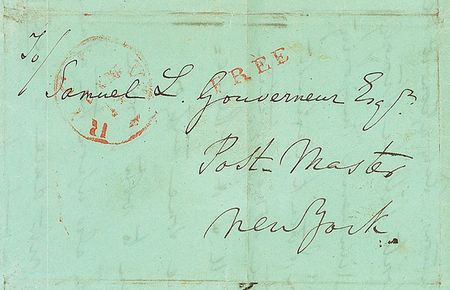 To/
FREE
21
Samuel L. Gouverneur Esqr.
Post-Master
New York